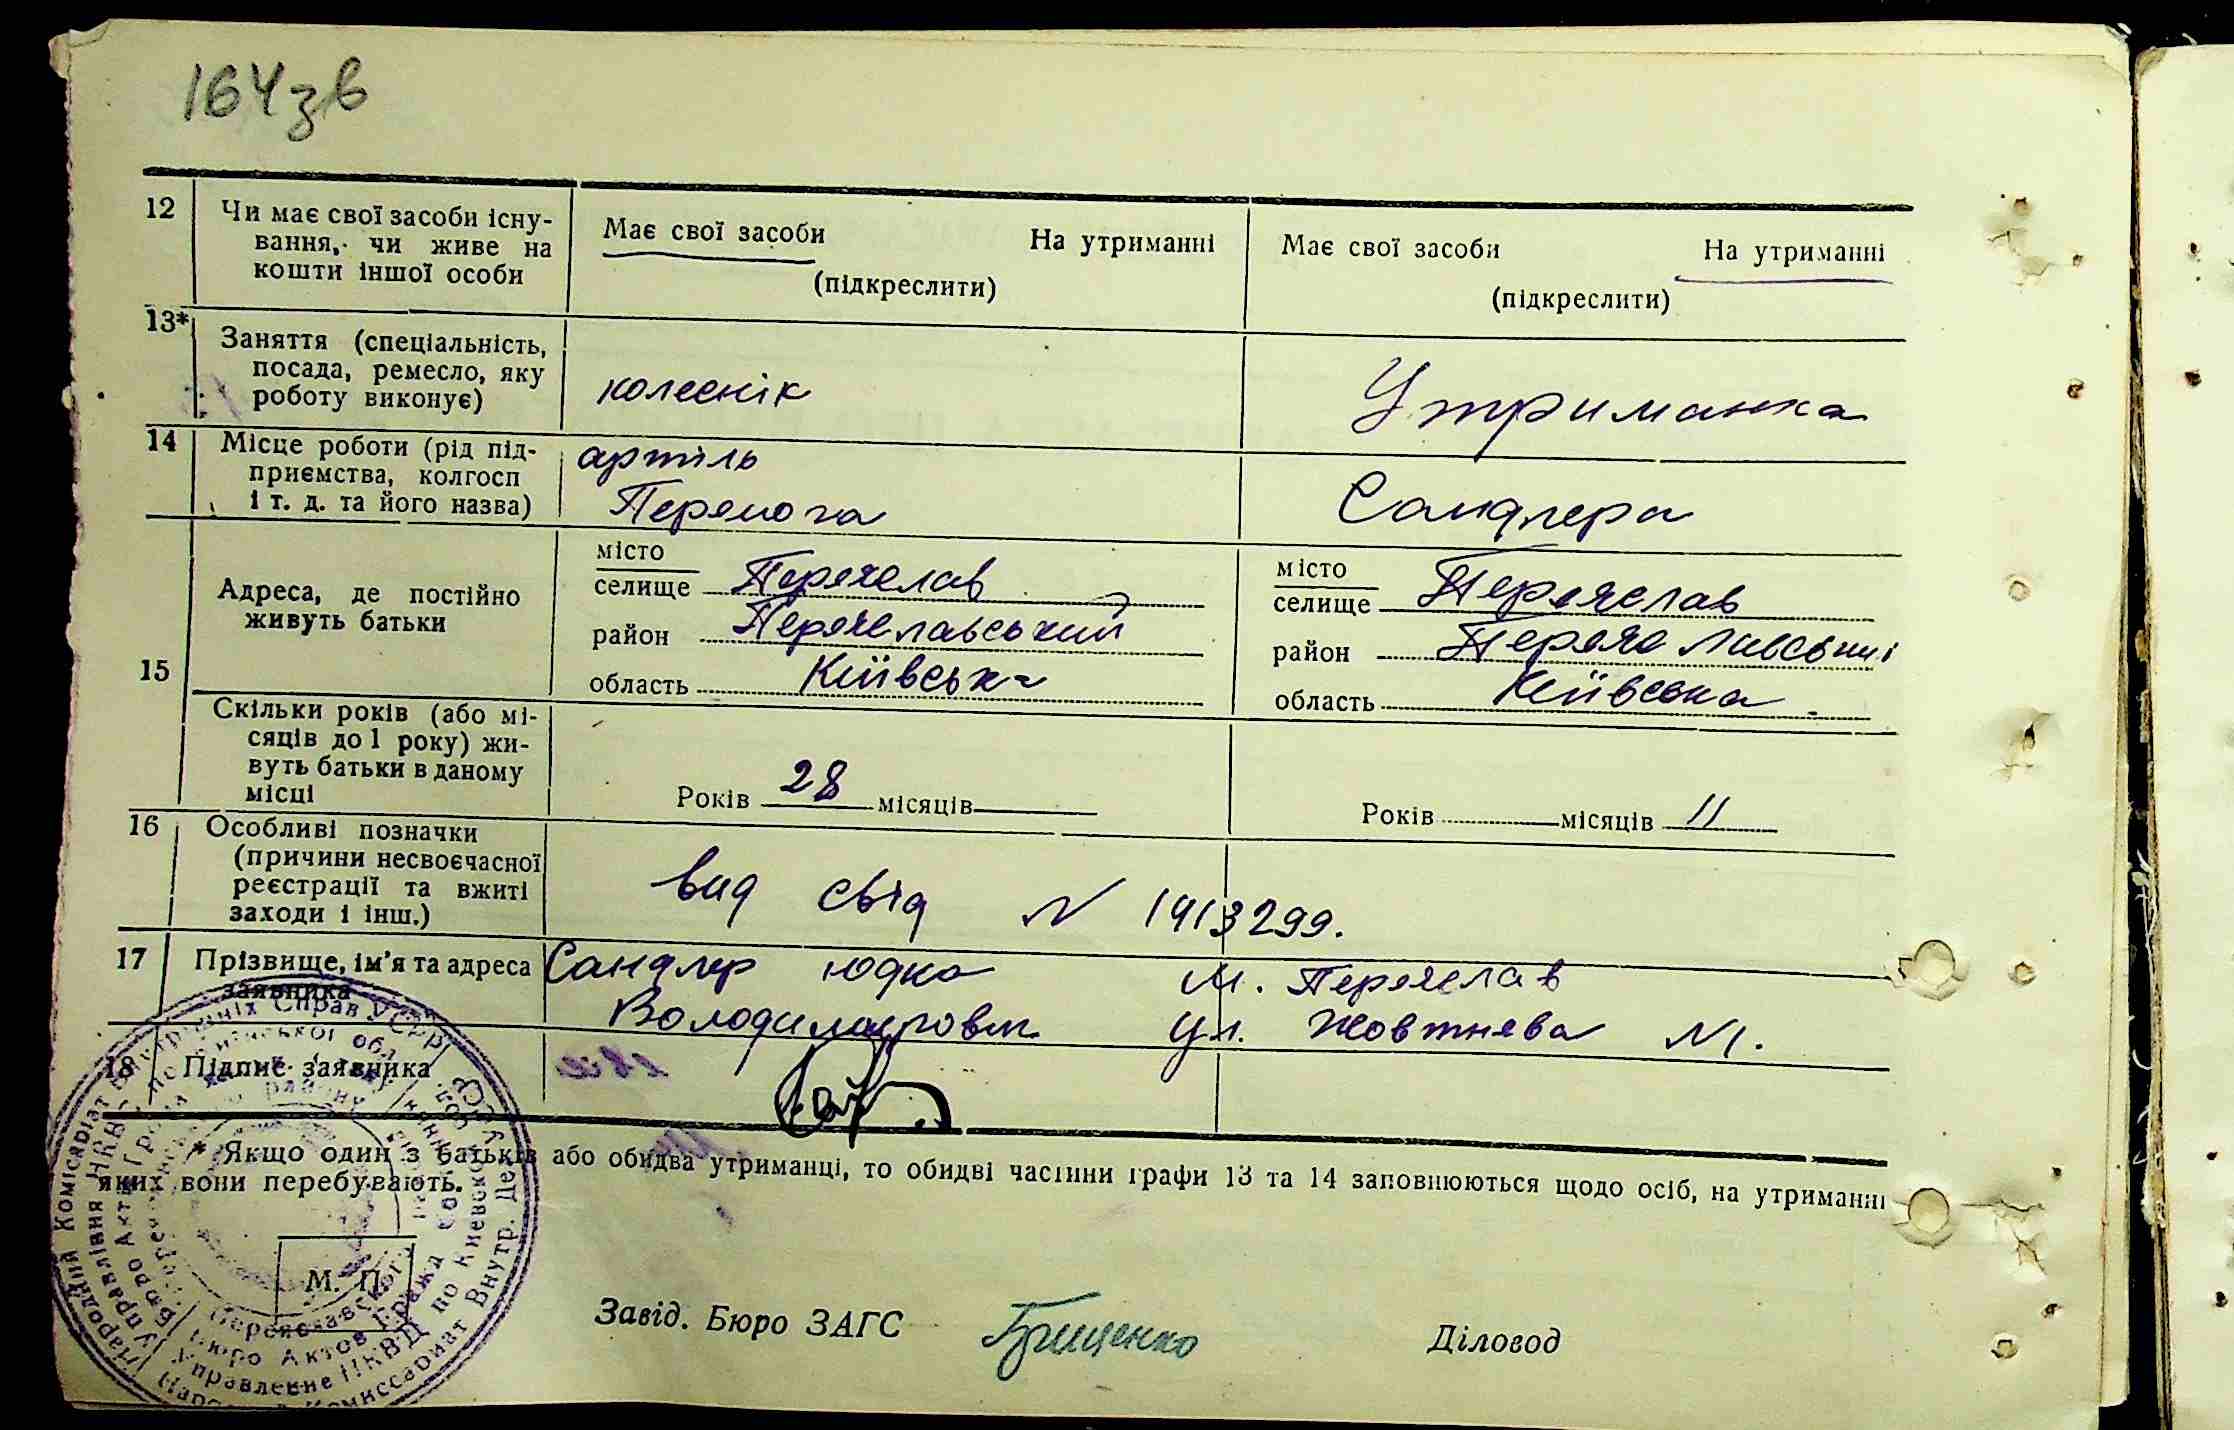 164зв
12 Чи має свої засоби існу-
вання, чи живе на
кошти іншої особи
Має свої засоби На утриманні
(підкреслити)
Має свої засоби На утриманні
(підкреслити)
13* Заняття (спеціальність,
посада, ремесло, яку
роботу виконує)
колеснік
Утриманка
14 Місце роботи (рід під-
приємства, колгосп
і т. д. та його назва)
артіль
Перемога
Сандлера
15 Адреса, де постійно
живуть батьки
місто
селище Переяслав
район Переяславський
область Київська
місто
селище Переяслав
район
область Київська
Скільки років (або мі-
сяців до 1 року) жи-
вуть батьки в даному
місці
Років 28 місяців
Років місяців 11
16 Особливі позначки
(причини несвоєчасної
реєстрації та вжиті
заходи і інш.)
вид свід N 1413299.
17 Прізвище, ім'я та адреса
заявника
Сандлер Юдко м. Переяслав
ул. Жовтнева N1.
18 Підпис заявника
* Якщо один з батьків або обидва утриманці, то обидві частини графи 13 та 14 заповнюються щодо осіб, на утриманні
яких вони перебувають.
М. П.
Завід. Бюро ЗАГС Грищенко Діловод
Народний Комісаріат Внутрішніх Справ УСРР
Управління НКВС
Бюро Актів
Бюро Актов Гражд. Сост.
Управление НКВД по Киевской обл.
Народный Комиссариат Внутр. Дел УССР